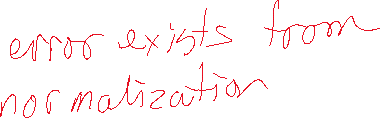 error exists from
normalization